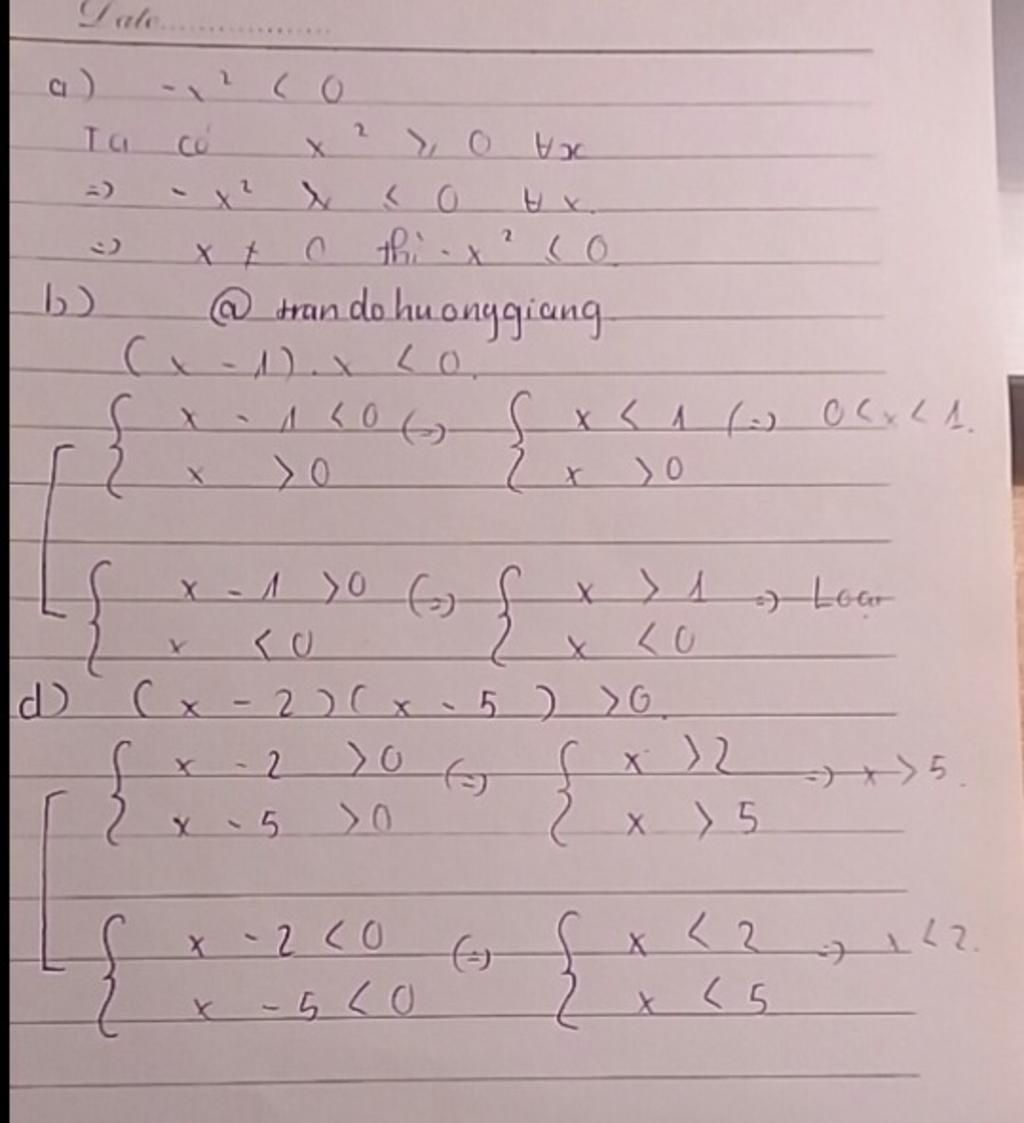 Date..................
a) -x² < 0
Ta có x² ≥ 0 ∀x
=> -x² < 0 ∀x.
=> x ≠ 0 thì -x² < 0
b) @trandohuonggiang
(x - 1).x < 0.
{ x - 1 < 0 (=) { x < 1 (=) 0 < x < 1.
[ x > 0 x > 0
{ x - 1 > 0 (=) { x > 1 =)
x < 0 x < 0
d) (x - 2)(x - 5) > 0.
{ x - 2 > 0 (=) { x > 2 => x > 5.
[ x - 5 > 0 x > 5
{ x - 2 < 0 (=) { x < 2 => x < 2.
x - 5 < 0 x < 5